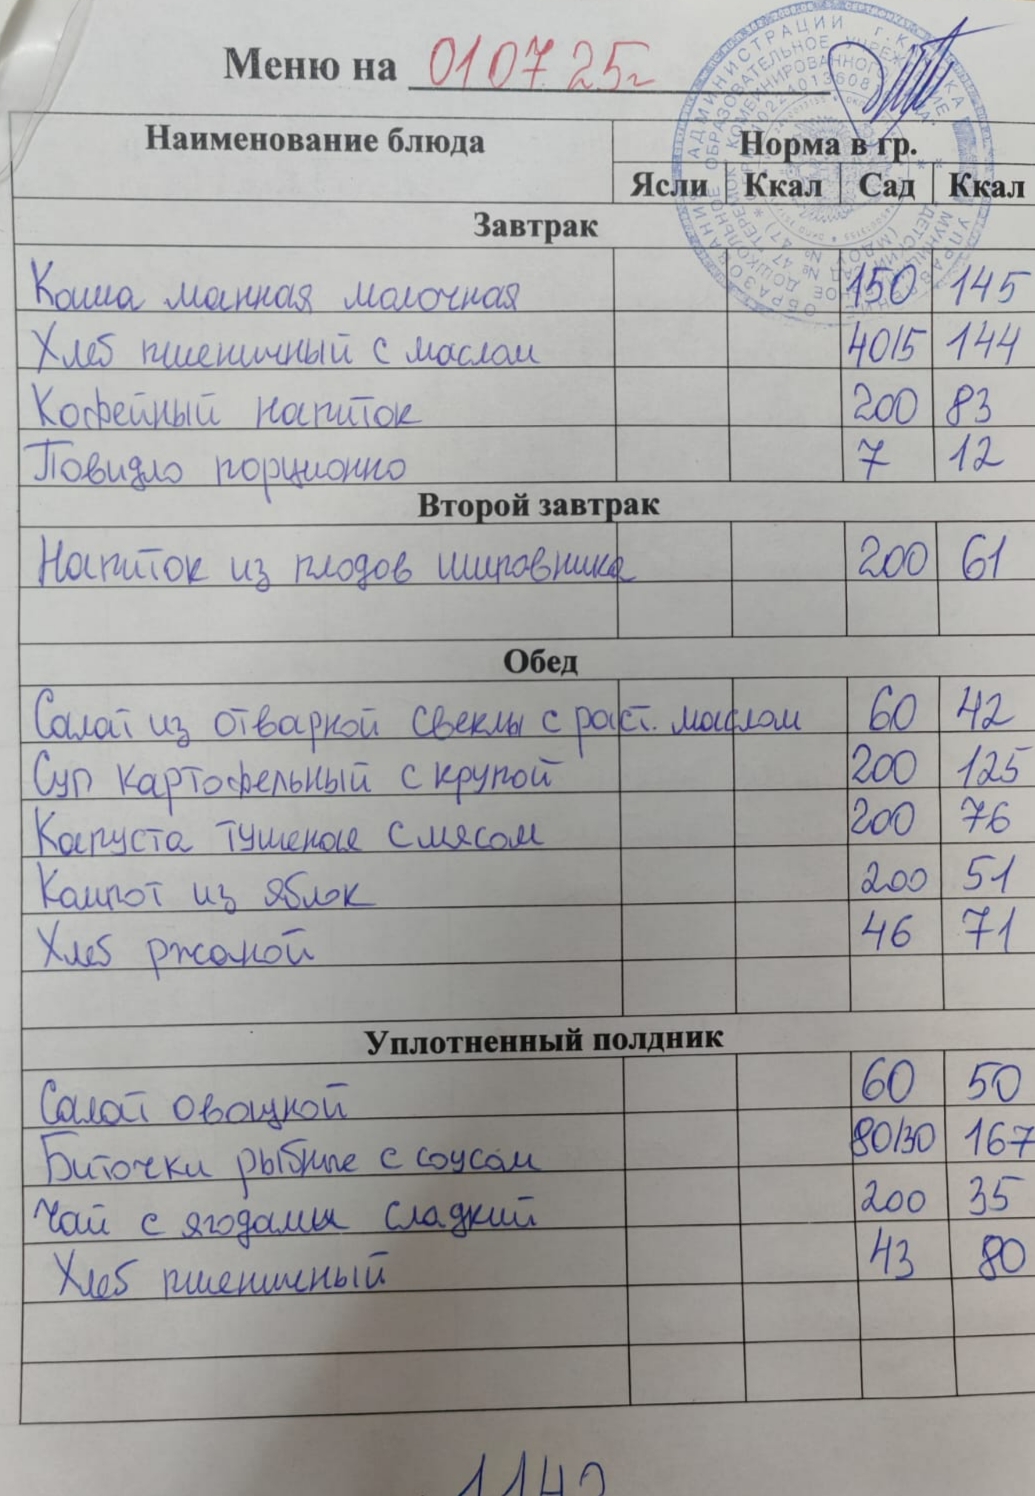 Меню на 01.07.25г
Наименование блюда Норма в гр.
Ясли Ккал Сад Ккал
Завтрак
Каша манная молочная 150 145
Хлеб пшеничный с маслом 40/5 144
Кофейный напиток 200 83
Повидло порционно 7 12
Второй завтрак
Напиток из плодов шиповника 200 61
Обед
Салат из отварной свеклы с раст. маслом 60 42
Суп картофельный с крупой 200 125
Капуста тушеная с мясом 200 76
Компот из яблок 200 51
Хлеб ржаной 46 71
Уплотненный полдник
Салат овощной 60 50
Биточки рыбные с соусом 80/30 167
Чай с ягодами сладкий 200 35
Хлеб пшеничный 43 80
1142